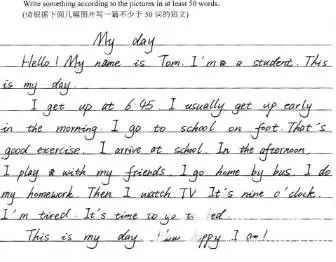 Write something according to the pictures in at least 50 words.
(请根据下面几幅图片写一篇不少于 50 词的短文)
My day
Hello! My name is Tom. I'm a student. This
is my day.
I get up at 6:45. I usually get up early
in the morning. I go to school on foot. That's
good exercise. I arrive at school. In the afternoon,
I play with my friends. I go home by bus. I do
my homework. Then I watch TV. It's nine o'clock.
I'm tired. It's time to go to bed.
This is my day. How happy I am!